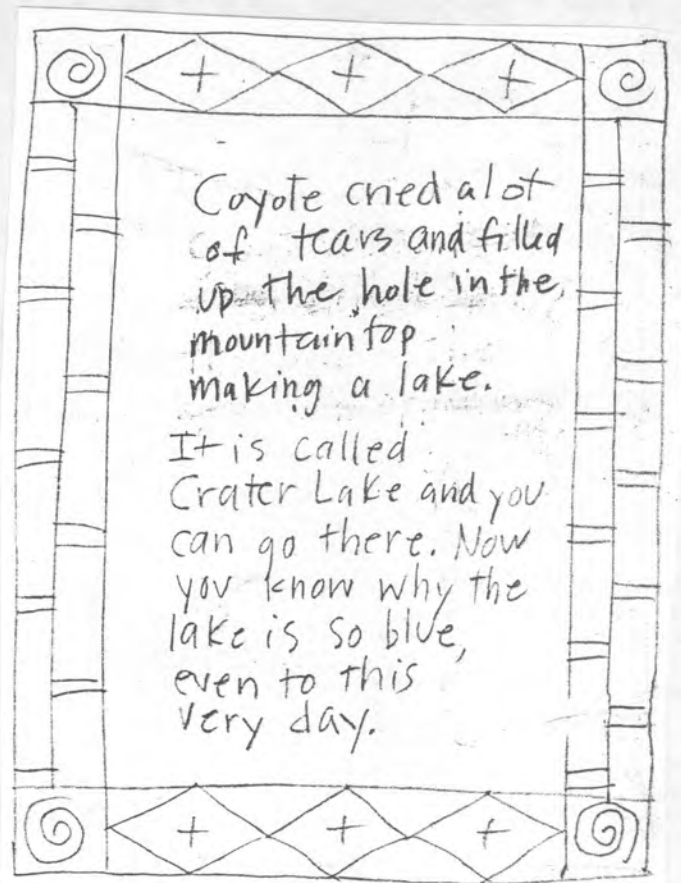 Coyote cried a lot
of tears and filled
up the hole in the
mountaintop
making a lake.
It is called
Crater Lake and you
can go there. Now
you know why the
lake is so blue,
even to this
very day.